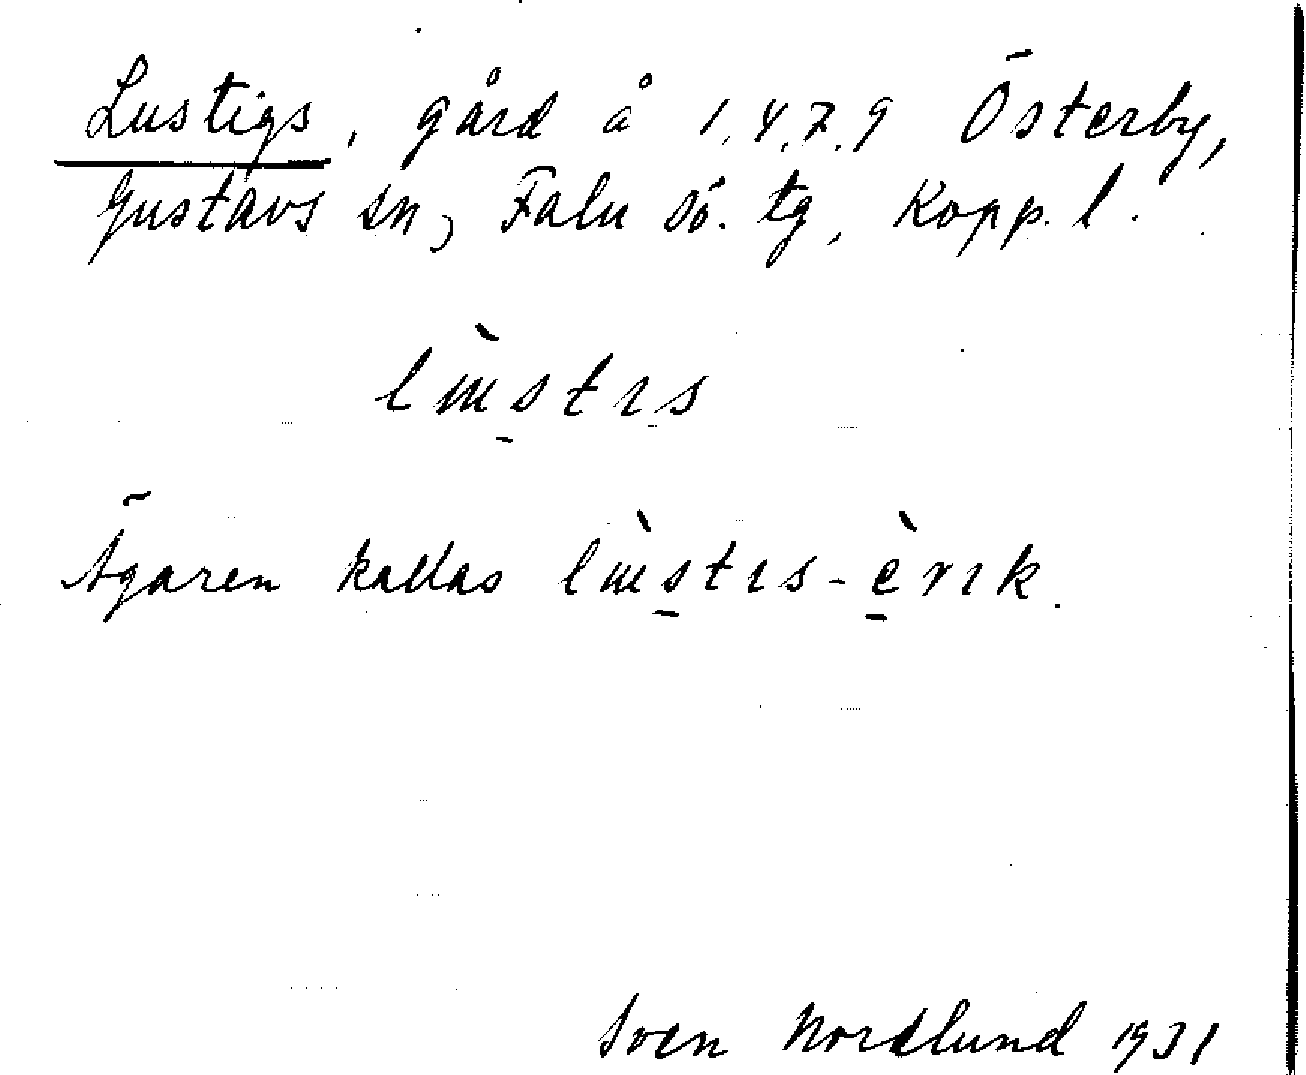 Lustigs, gård å 1.4.7.9 Österby,
Gustavs sn, Falu sö. tg, Kopp. l.
lùstıs
Ägaren kallas lùstıs-èrık.
Sven Nordlund 1931